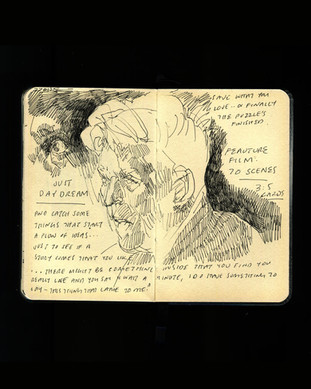 JUST
DAY DREAM
AND CATCH SOME
THINGS THAT START
A FLOW OF IDEAS...
JUST TO SEE IF A
STORY COMES THAT YOU LIKE
... THERE MIGHT BE SOMETHING INSIDE THAT YOU FIND YOU
REALLY LIKE AND YOU SAY WAIT A MINUTE, I'D
THINGS THAT CAME TO ME."
SAVE WHAT YOU
LOVE... FINALLY
THE PUZZLE'S
FINISHED.
FEATURE
FILM:
70 SCENES
3:5
CARDS